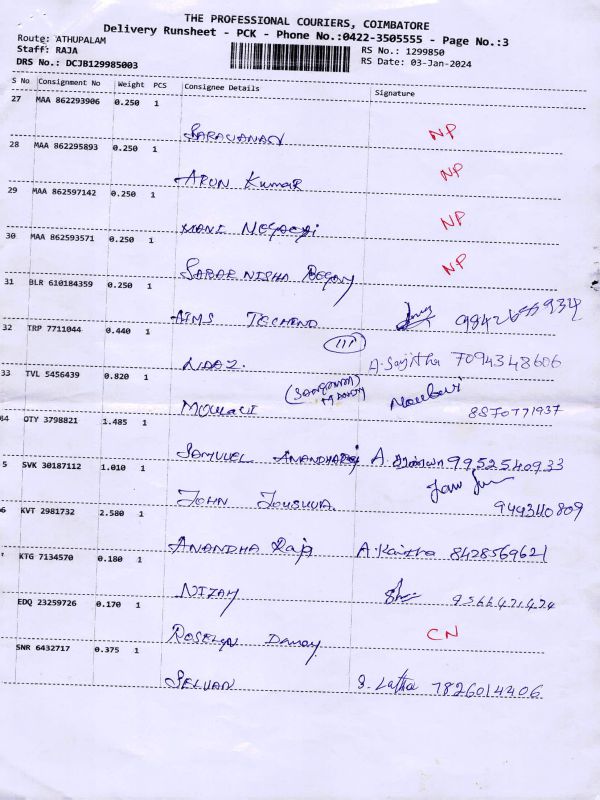 THE PROFESSIONAL COURIERS, COIMBATORE
Delivery Runsheet - PCK - Phone No.:0422-3505555 - Page No.:3
Route: ATHUPALAM
Staff: RAJA RS No.: 1299850
DRS No.: DCJB129985003 RS Date: 03-Jan-2024
S No Consignment No Weight PCS Consignee Details Signature
27 MAA 862293906 0.250 1
SARAVANAN NP
28 MAA 862295893 0.250 1
ARUN KUMAR NP
29 MAA 862597142 0.250 1
MANI NP
30 MAA 862593571 0.250 1
SABAR NISHA BEGAM NP
31 BLR 610184359 0.250 1
AIMS
32 TRP 7711044 0.440 1
7094348606
33 TVL 5456439 0.820 1
MOULAVI 8870771937
34 OTY 3798821 1.485 1
SAMUVEL A. 9952540933
5 SVK 30187112 1.010 1
JOHN 9493110809
6 KVT 2981732 2.580 1
ANANDHA Raj 8428569621
KTG 7134570 0.180 1
NIZAM 9566471424
EDQ 23259726 0.170 1
CN
SNR 6432717 0.375 1
SELVAN S. Latha 7826014406